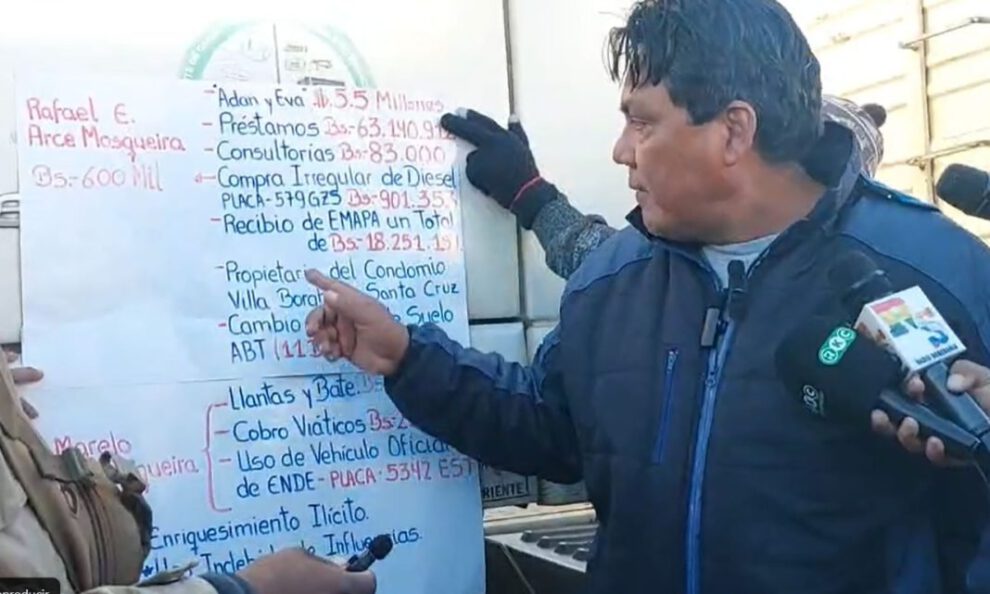 Rafael E.
Arce Mosqueira
Bs.-600 Mil
- "Adan y Eva" 5.5 Millones
- Préstamos Bs-63.140.91
- Consultorías Bs-83.000
- Compra Irregular de Diesel
PLACA-579GZS Bs-901.353
- Recibio de EMAPA un Total
de Bs-18.251.151
- Propietari del Condomio
Villa Santa Cruz
- Cambio Suelo
ABT (11
- Llantas y Bate.
- Cobro Viáticos Bs-
- Uso de Vehículo Oficial
de ENDE-PLACA-5342 EST
Marelo
queira
Enriquesimiento Ilícito.
de Influencias.
RIENTE